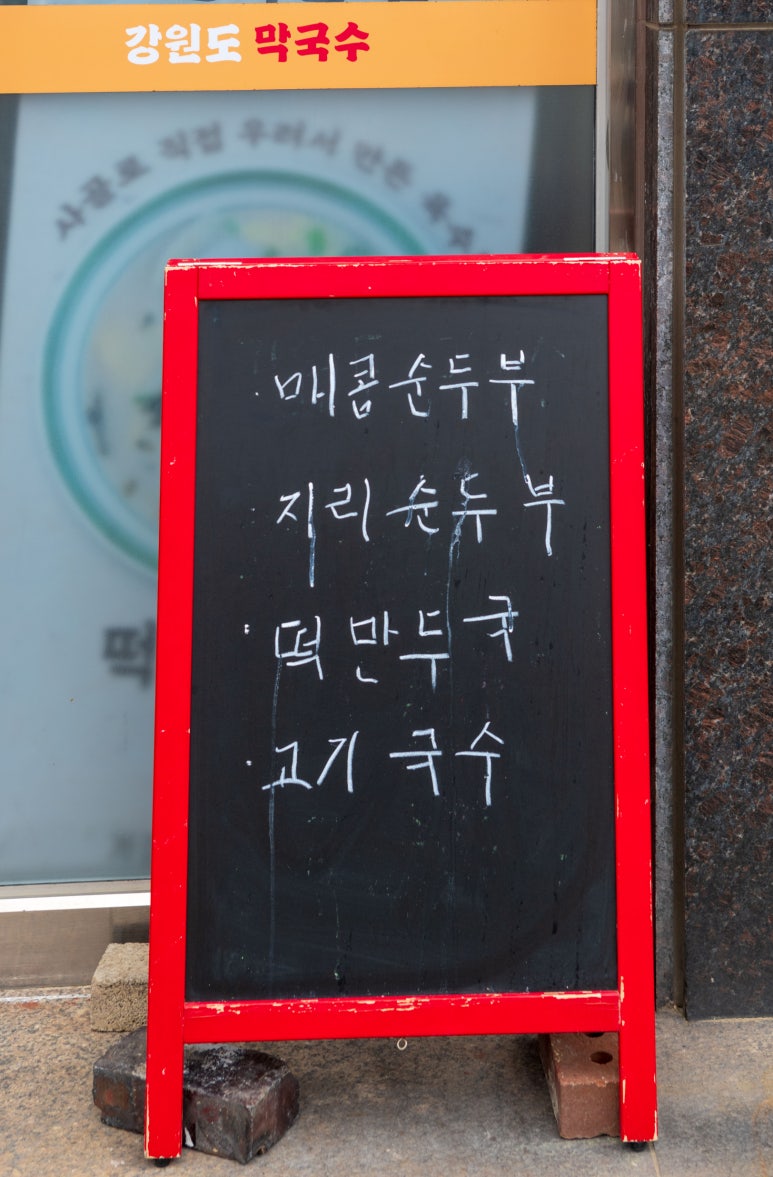 강원도 막국수
직접 우려서 만든
· 매콤순두부
지리순두부
· 떡만두국
· 고기 국수
떡